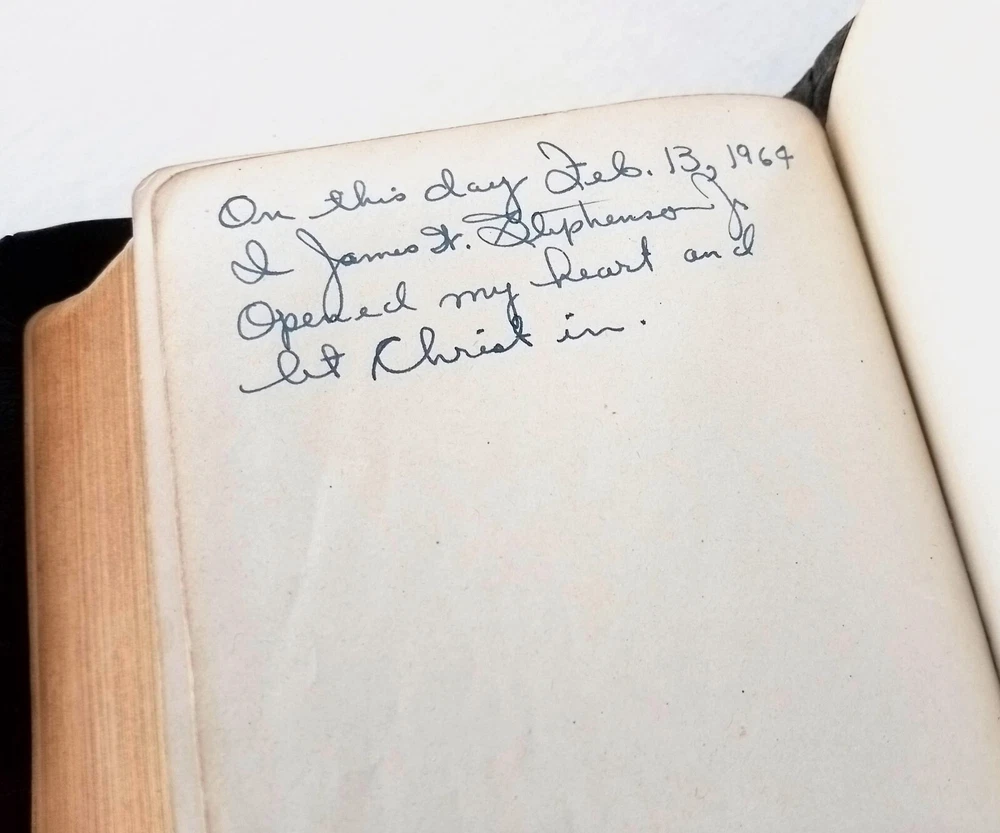 On this day Feb. 13, 1964
I James W. Stephenson Jr
Opened my heart and
let Christ in.